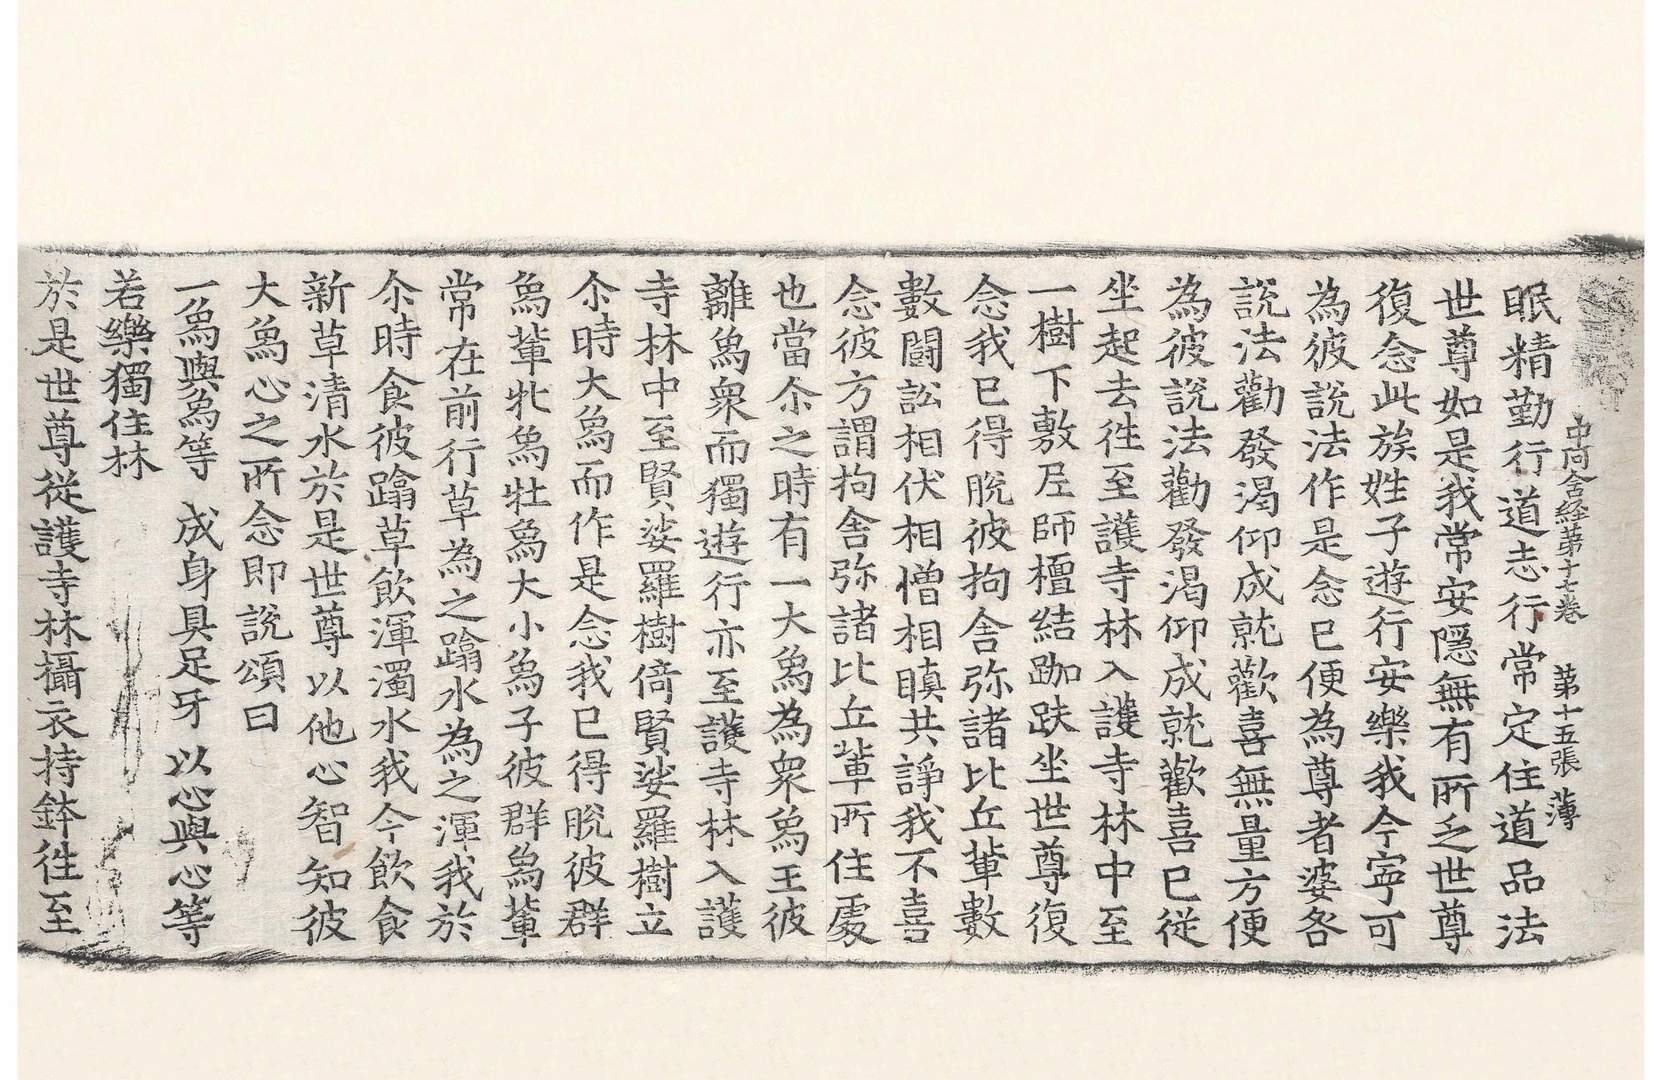 中阿含経第十七卷 第十五張 薄
眠精勤行道志行常定住道品法
世尊如是我常安隱無有所乏世尊
復念此族姓子遊行安樂我今寧可
為彼說法作是念已便為尊者婆咎
說法勸發渴仰成就歡喜無量方便
為彼說法勸發渴仰成就歡喜已從
坐起去徃至護寺林入護寺林中至
一樹下敷尼師檀結跏趺坐世尊復
念我已得脫彼拘舍弥諸比丘輩數
數闘訟相伏相憎相瞋共諍我不喜
念彼方謂拘舍弥諸比丘輩所住處
也當尒之時有一大為為衆為王彼
離為衆而獨遊行亦至護寺林入護
寺林中至賢娑羅樹倚賢娑羅樹立
尒時大為而作是念我已得脫彼群
為輩牝為牡為大小為子彼群為輩
常在前行草為之蹹水為之渾我於
尒時食彼蹹草飲渾濁水我今飲食
新草清水於是世尊以他心智知彼
大為心之所念即說頌曰
一為與為等 成身具足牙 以心與心等
若樂獨住林
於是世尊從護寺林攝衣持鉢徃至